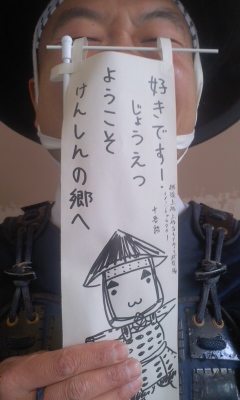 好きですー。
じょうえつ
ようこそ
けんしんの郷へ